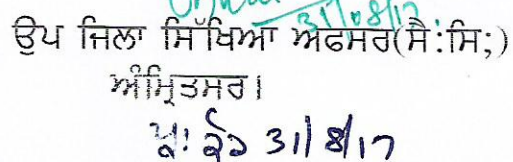 31/08/17
ਉਪ ਜਿਲਾ ਸਿੱਖਿਆ ਅਫਸਰ(ਸੈ:ਸਿ;)
ਅੰਮ੍ਰਿਤਸਰ।
31/8/17